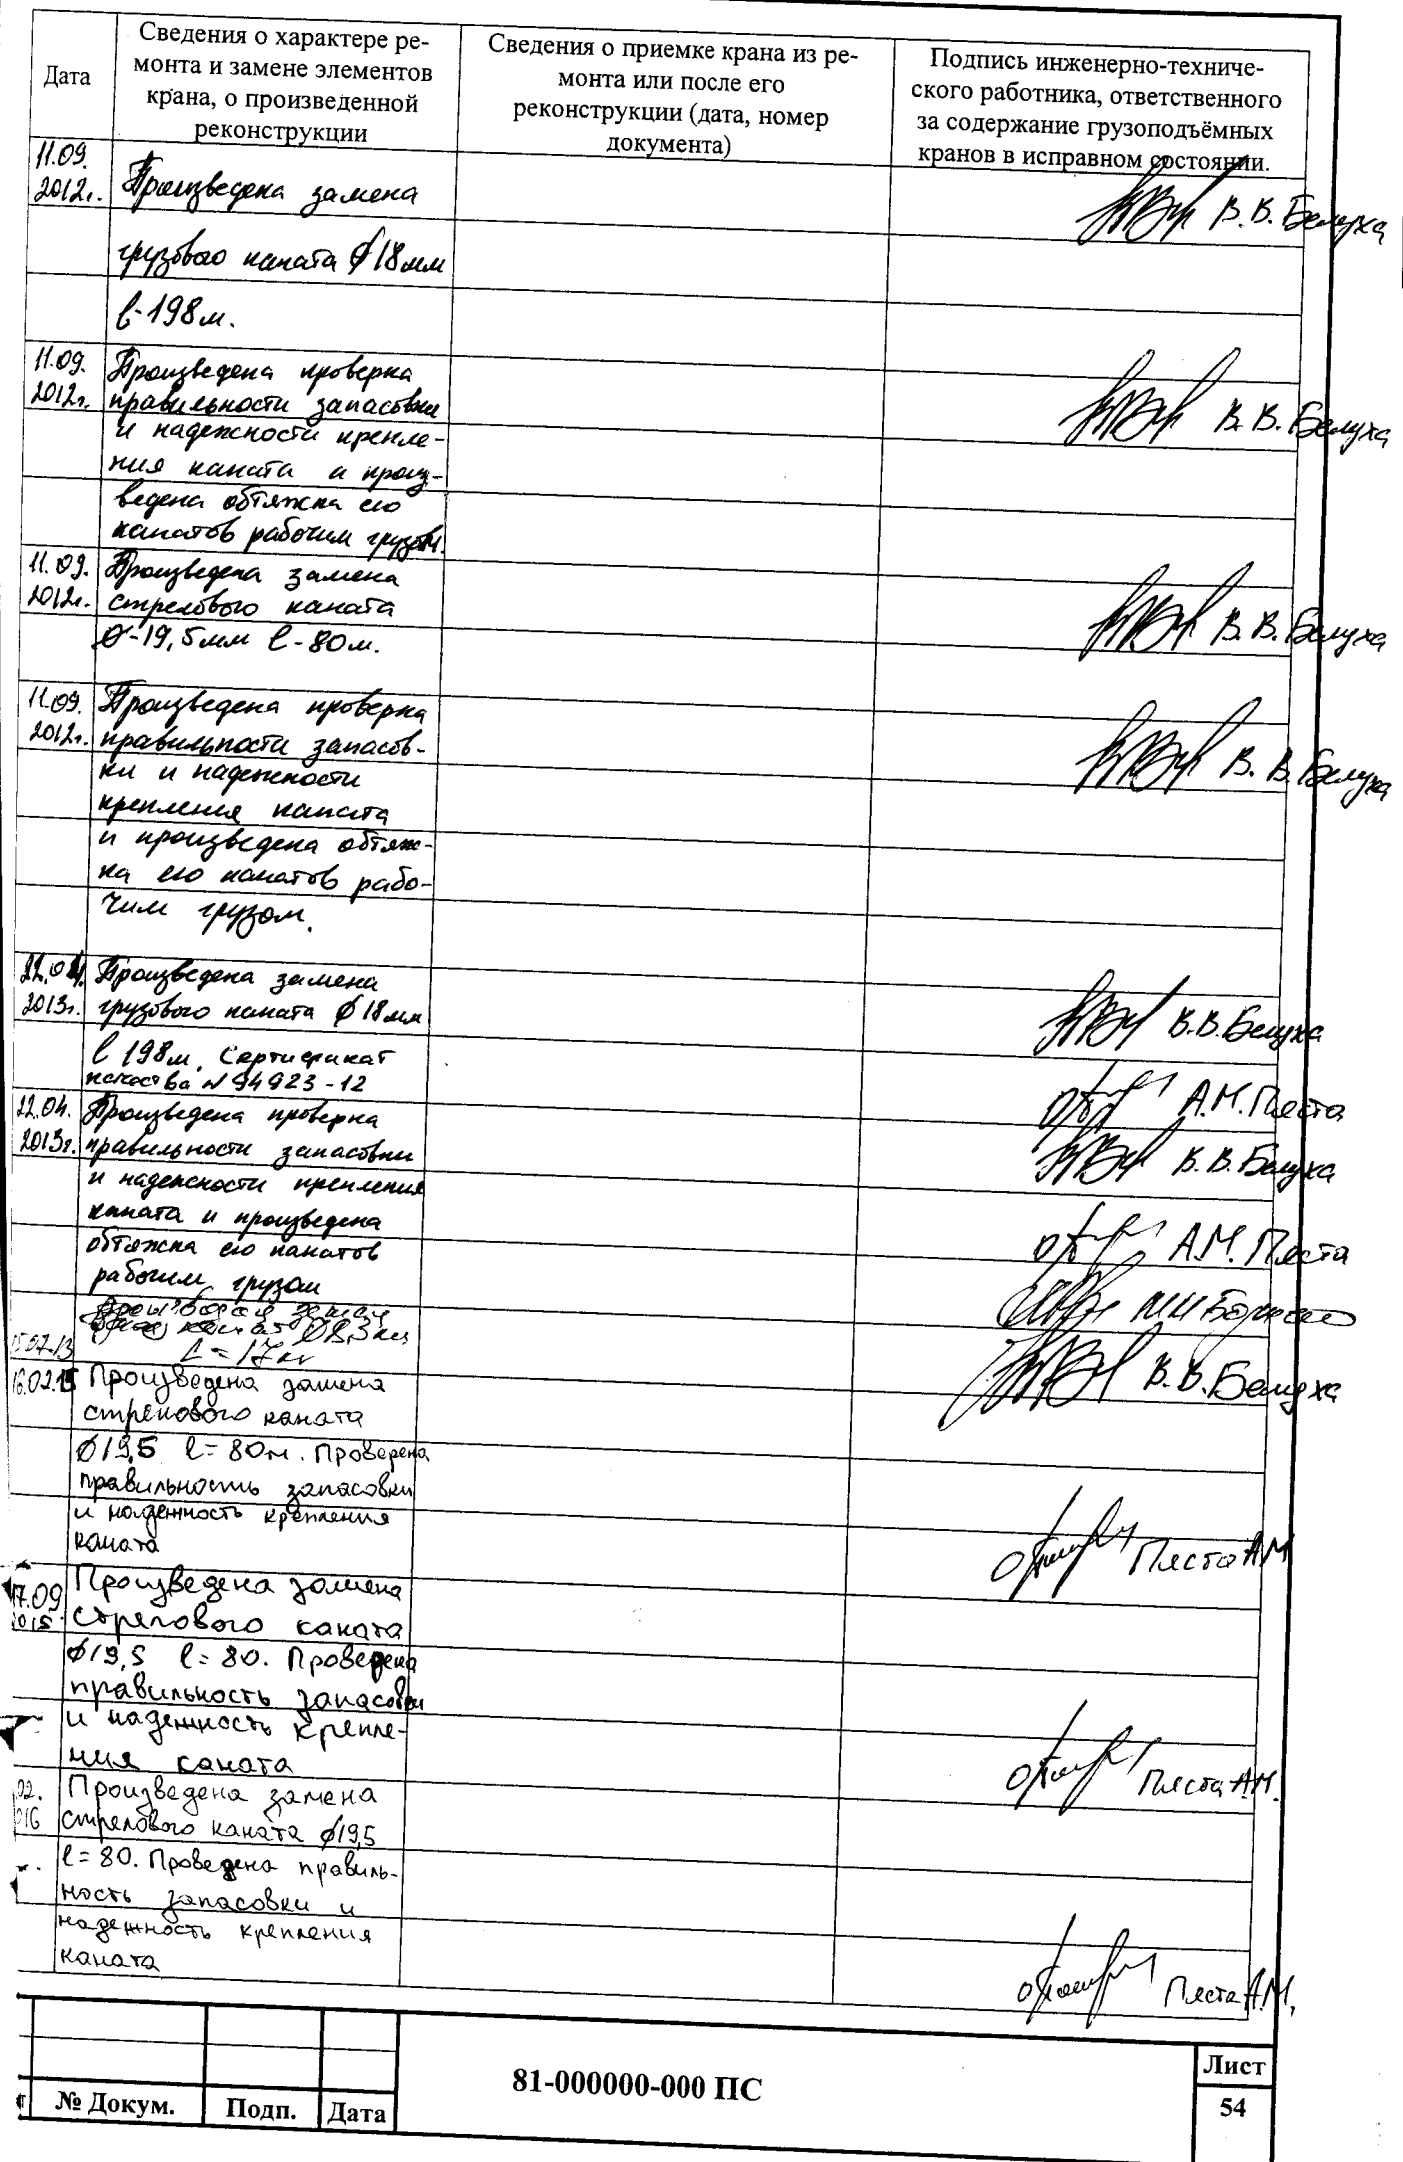 Дата
Сведения о характере ре-
монта и замене элементов
крана, о произведенной
реконструкции
Сведения о приемке крана из ре-
монта или после его
реконструкции (дата, номер
документа)
Подпись инженерно-техниче-
ского работника, ответственного
за содержание грузоподъёмных
кранов в исправном состоянии.
11.09.
2012г.
Произведена замена
грузового каната ϕ18мм
ℓ-198м.
В.В. Белуха
11.09.
2012г.
Произведена проверка
правильности запасовки
и надежности крепле-
ния каната и произ-
ведена обтяжка его
канатов рабочим грузом.
В.В. Белуха
11.09.
2012г.
Произведена замена
стрелового каната
ϕ-19,5мм ℓ-80м.
В.В. Белуха
11.09.
2012г.
Произведена проверка
правильности запасов-
ки и надежности
крепления каната
и произведена обтяж-
ка его канатов рабо-
чим грузом.
В.В. Белуха
22.04.
2013г.
Произведена замена
грузового каната ϕ18мм
ℓ 198м. Сертификат
качества №94923-12
В.В. Белуха
А.М. Пяста
22.04.
2013г.
Произведена проверка
правильности запасовки
и надежности крепления
каната и произведена
обтяжка его канатов
рабочим грузом
В.В. Белуха
А.М. Пяста
15.07.13
канат
L=17м
16.02.15
Произведена замена
стрелового каната
ϕ19,5 ℓ=80м. Проверена
правильность запасовки
и надежность крепления
каната
В.В. Белуха
Пяста А.М
17.09
2015
Произведена замена
стрелового каната
ϕ19,5 ℓ=80. Проведена
правильность запасовки
и надежность крепле-
ния каната
Пяста А.М.
02.
016
Произведена замена
стрелового каната ϕ19,5
ℓ=80. Проведена правиль-
ность запасовки и
надежность крепления
каната
Пяста А.М.
№ Докум.
Подп.
Дата
81-000000-000 ПС
Лист
54